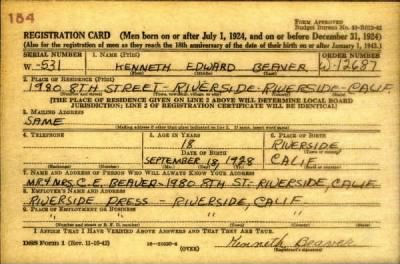 184
FORM APPROVED
Budget Bureau No.
REGISTRATION CARD (Men born on or after July 1, 1924, and on or before December 31, 1924)
(Also for the registration of men as they reach the 18th anniversary of the date of their birth on or after January 1, 1943.)
SERIAL NUMBER 1. NAME (Print) ORDER NUMBER
W-531 KENNETH EDWARD BEAVER W-12687
(First) (Middle) (Last)
2. PLACE OF RESIDENCE (Print)
1980 8TH STREET - RIVERSIDE - RIVERSIDE - CALIF.
[THE PLACE OF RESIDENCE GIVEN ON LINE 2 ABOVE WILL DETERMINE LOCAL BOARD
JURISDICTION; LINE 2 OF REGISTRATION CERTIFICATE WILL BE IDENTICAL]
3. MAILING ADDRESS
SAME
[Mailing address if other than place indicated on line 2. If same, insert word same]
4. TELEPHONE 5. AGE IN YEARS 6. PLACE OF BIRTH
18 RIVERSIDE
DATE OF BIRTH
SEPTEMBER 18, 1928 CALIF
7. NAME AND ADDRESS OF PERSON WHO WILL ALWAYS KNOW YOUR ADDRESS
MR & MRS. C. E BEAVER - 1980 8TH ST - RIVERSIDE, CALIF
8. EMPLOYER'S NAME AND ADDRESS
RIVERSIDE PRESS - RIVERSIDE, CALIF.
9. PLACE OF EMPLOYMENT OR BUSINESS
" " "
I AFFIRM THAT I HAVE VERIFIED ABOVE ANSWERS AND THAT THEY ARE TRUE.
DSS Form 1 (Rev. 11-16-42) (OVER) Kenneth Beaver
(Registrant's signature)